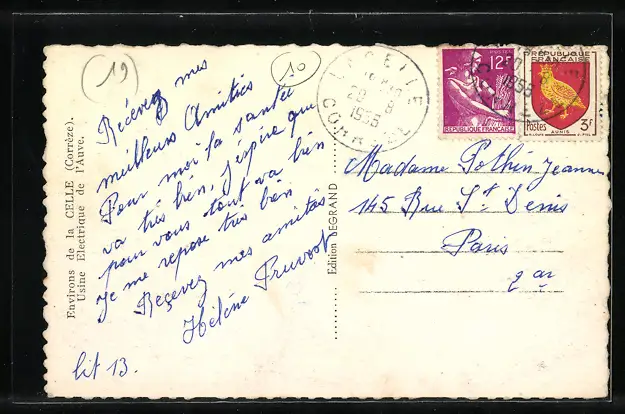 19
10
Recevez mes
meilleurs Amitiés
Pour moi la santée
va très bien, j'espère que
pour vous tout va bien
je me repose très bien
Reçevez mes amitiés
Hélène Pruvost
lit 13.
Environs de la CELLE (Corrèze).
Usine Electrique de l'Auve.
Edition LEGRAND
LACELLE
1955
CORREZE
12F
POSTES
REPUBLIQUE FRANÇAISE
RÉPUBLIQUE
FRANÇAISE
1955
Postes
3F
AUNIS
Madame Pothin Jeanne
145 Rue St Denis
Paris
2 ar